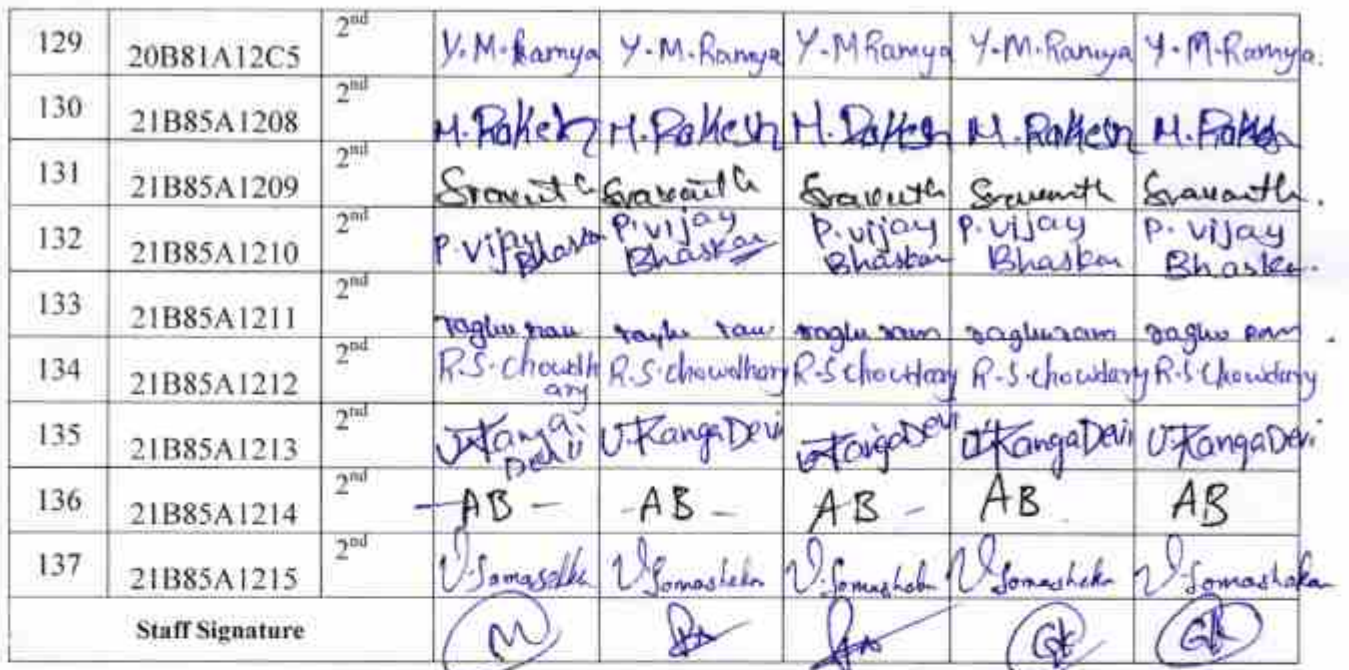 129 20B81A12C5 2nd Y.M.Ramya Y.M.Ramya Y.M Ramya Y.M.Ramya Y.M.Ramya.
130 21B85A1208 2nd M.Rakesh M.Rakesh M.Rakesh M.Rakesh M.Rakesh
131 21B85A1209 2nd Sravanth Sravanth Sravanth Sravanth Sravanth.
132 21B85A1210 2nd P.Vijay Bhaskar P.Vijay Bhaskar P.Vijay Bhaskar P.Vijay Bhaskar P.Vijay Bhaskar.
133 21B85A1211 2nd raghu ram raghu ram raghu ram raghuram raghu ram
134 21B85A1212 2nd R.S.Chowdhary R.S.Chowdhary R.S Chowdary R.S.Chowdary R.S.Chowdary
135 21B85A1213 2nd U.KangaDevi U.KangaDevi U.KangaDevi U.KangaDevi
136 21B85A1214 2nd -AB- -AB- AB- AB AB
137 21B85A1215 2nd V.Somasheka V.Somasheka V.Somasheka V.Somasheka
Staff Signature